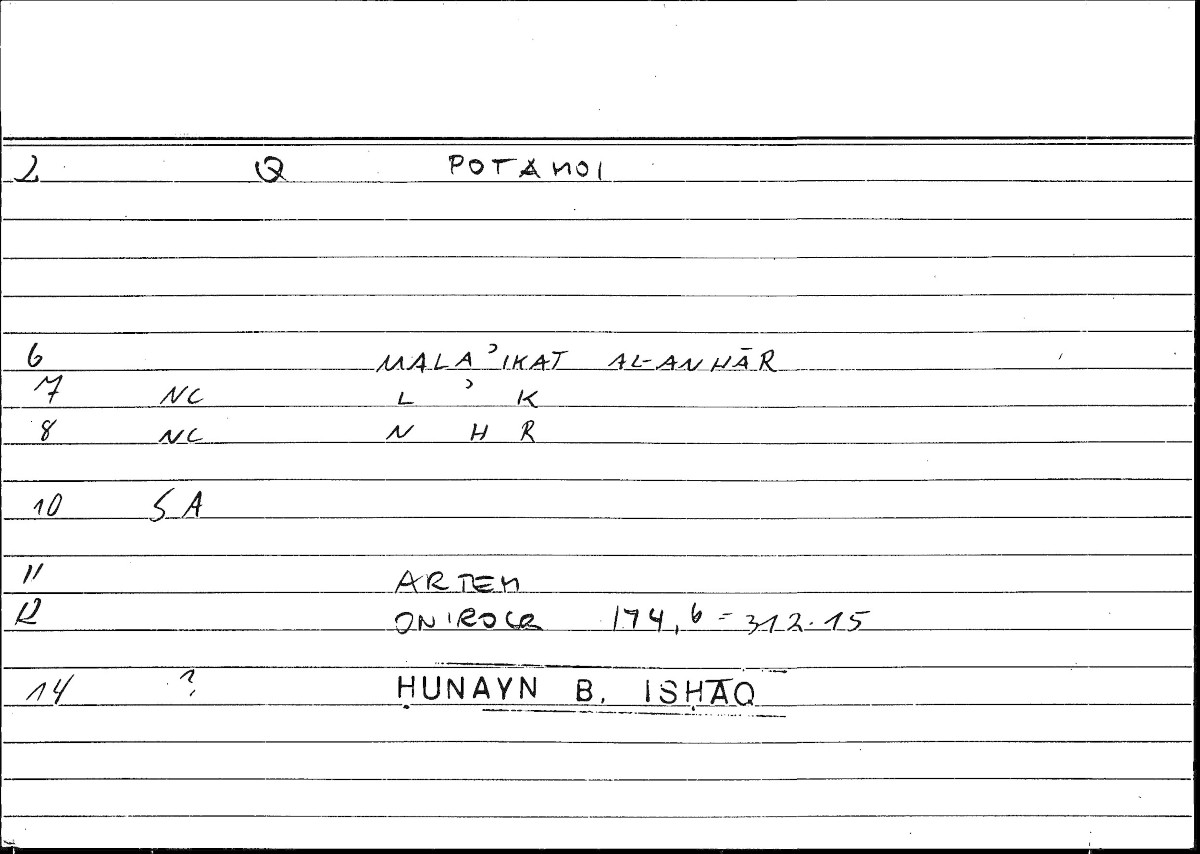 2 Q POTAMOI
6 MALAʾIKAT AL-ANHĀR
7 NC L ʾ K
8 NC N H R
10 SA
11 ARTEM
12 ONIROCR 174,6 = 312.15
14 ? ḤUNAYN B. ISḤĀQ